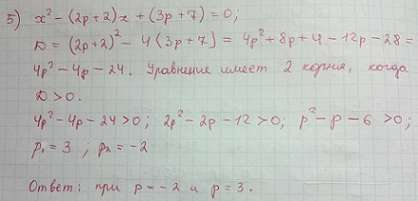 5) x² - (2p+2)x + (3p+7) = 0;
D = (2p+2)² - 4(3p+7] = 4p² + 8p + 4 - 12p - 28 =
4p² - 4p - 24. Уравнение имеет 2 корня, когда
D > 0.
4p² - 4p - 24 > 0; 2p² - 2p - 12 > 0; p² - p - 6 > 0;
p₁ = 3 ; p₂ = -2
Ответ: при p = -2 и p = 3.